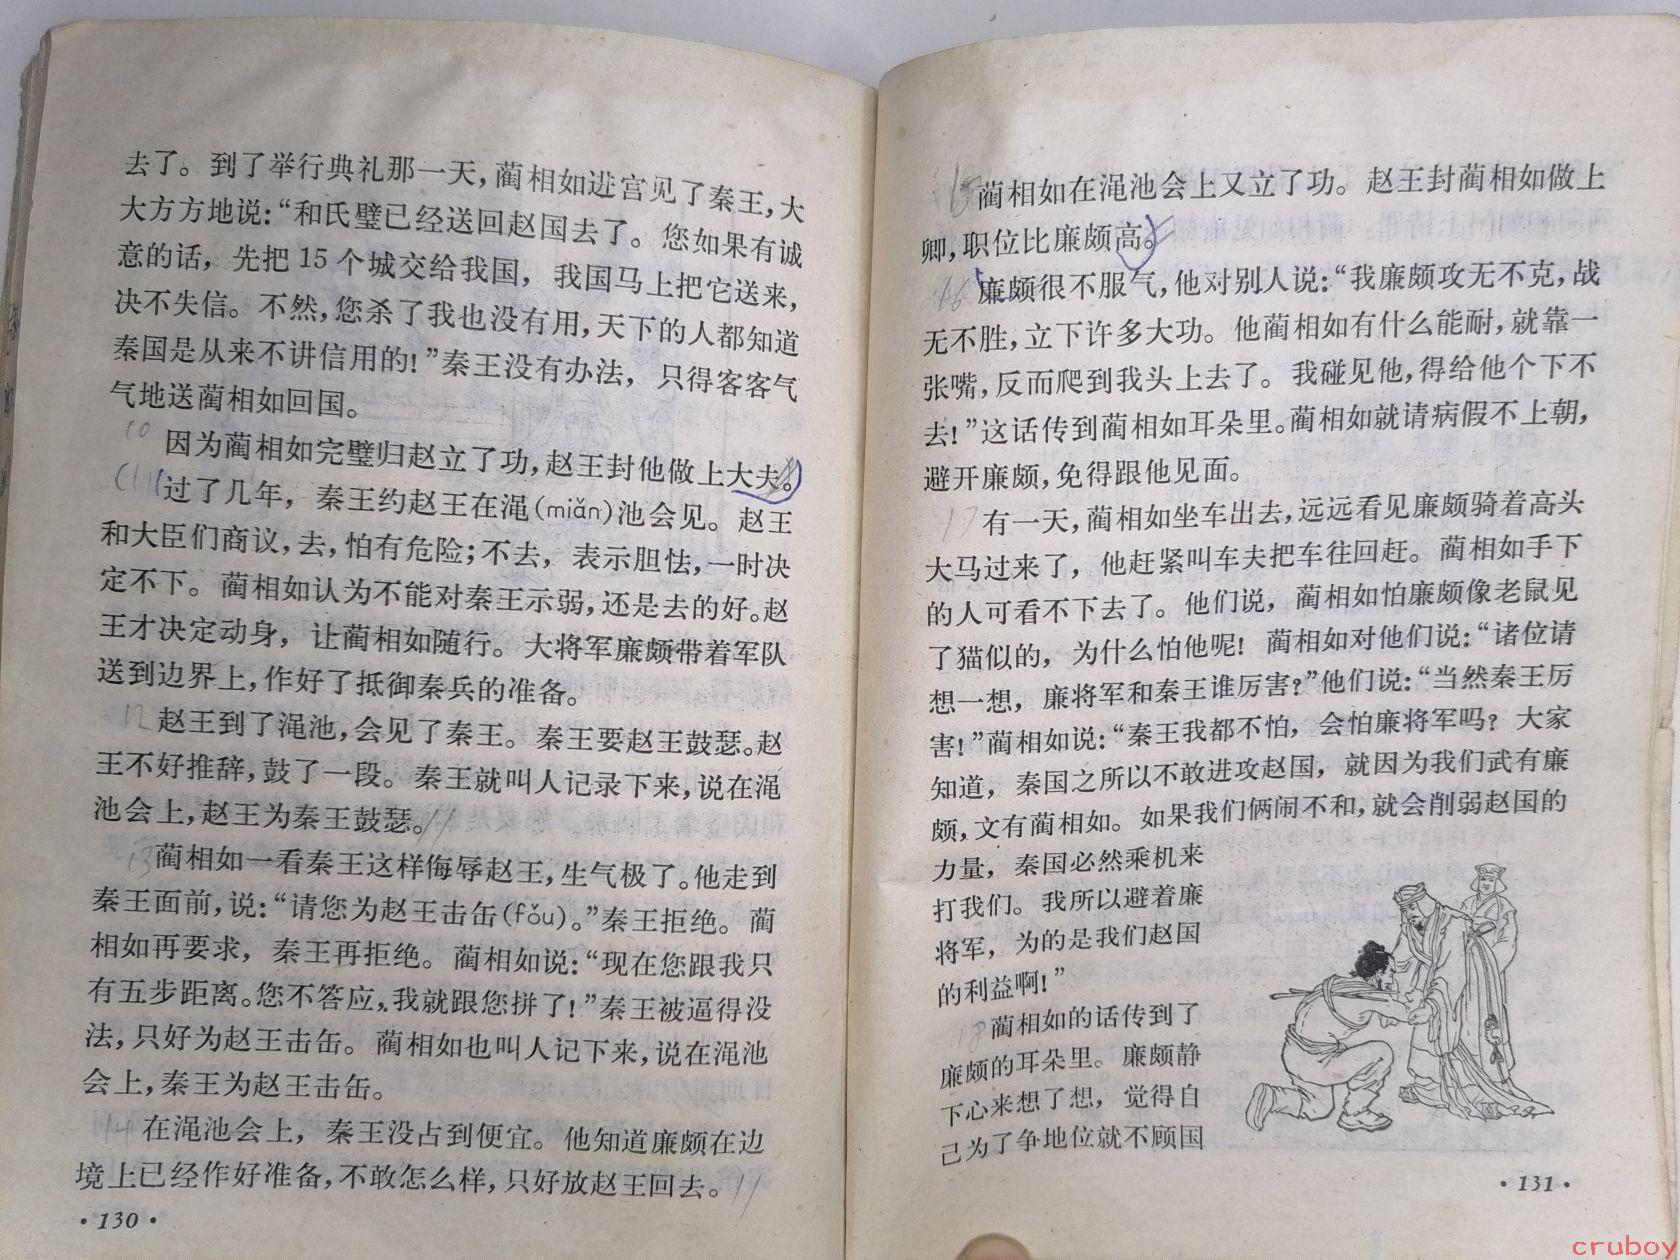 去了。到了举行典礼那一天，蔺相如进宫见了秦王，大
大方方地说：“和氏璧已经送回赵国去了。您如果有诚
意的话，先把15个城交给我国，我国马上把它送来，
决不失信。不然，您杀了我也没有用，天下的人都知道
秦国是从来不讲信用的！”秦王没有办法，只得客客气
气地送蔺相如回国。
10
因为蔺相如完璧归赵立了功，赵王封他做上大夫。
11
过了几年，秦王约赵王在渑(miǎn)池会见。赵王
和大臣们商议，去，怕有危险；不去，表示胆怯，一时决
定不下。蔺相如认为不能对秦王示弱，还是去的好。赵
王才决定动身，让蔺相如随行。大将军廉颇带着军队
送到边界上，作好了抵御秦兵的准备。
12
赵王到了渑池，会见了秦王。秦王要赵王鼓瑟。赵
王不好推辞，鼓了一段。秦王就叫人记录下来，说在渑
池会上，赵王为秦王鼓瑟。
13
蔺相如一看秦王这样侮辱赵王，生气极了。他走到
秦王面前，说：“请您为赵王击缶(fǒu)。”秦王拒绝。蔺
相如再要求，秦王再拒绝。蔺相如说：“现在您跟我只
有五步距离。您不答应，我就跟您拼了！”秦王被逼得没
法，只好为赵王击缶。蔺相如也叫人记下来，说在渑池
会上，秦王为赵王击缶。
14
在渑池会上，秦王没占到便宜。他知道廉颇在边
境上已经作好准备，不敢怎么样，只好放赵王回去。
·130·
15
蔺相如在渑池会上又立了功。赵王封蔺相如做上
卿，职位比廉颇高。
16
廉颇很不服气，他对别人说：“我廉颇攻无不克，战
无不胜，立下许多大功。他蔺相如有什么能耐，就靠一
张嘴，反而爬到我头上去了。我碰见他，得给他个下不
去！”这话传到蔺相如耳朵里。蔺相如就请病假不上朝，
避开廉颇，免得跟他见面。
17
有一天，蔺相如坐车出去，远远看见廉颇骑着高头
大马过来了，他赶紧叫车夫把车往回赶。蔺相如手下
的人可看不下去了。他们说，蔺相如怕廉颇像老鼠见
了猫似的，为什么怕他呢！蔺相如对他们说：“诸位请
想一想，廉将军和秦王谁厉害？”他们说：“当然秦王厉
害！”蔺相如说：“秦王我都不怕，会怕廉将军吗？大家
知道，秦国之所以不敢进攻赵国，就因为我们武有廉
颇，文有蔺相如。如果我们俩闹不和，就会削弱赵国的
力量，秦国必然乘机来
打我们。我所以避着廉
将军，为的是我们赵国
的利益啊！”
18
蔺相如的话传到了
廉颇的耳朵里。廉颇静
下心来想了想，觉得自
己为了争地位就不顾国
·131·
cruboy